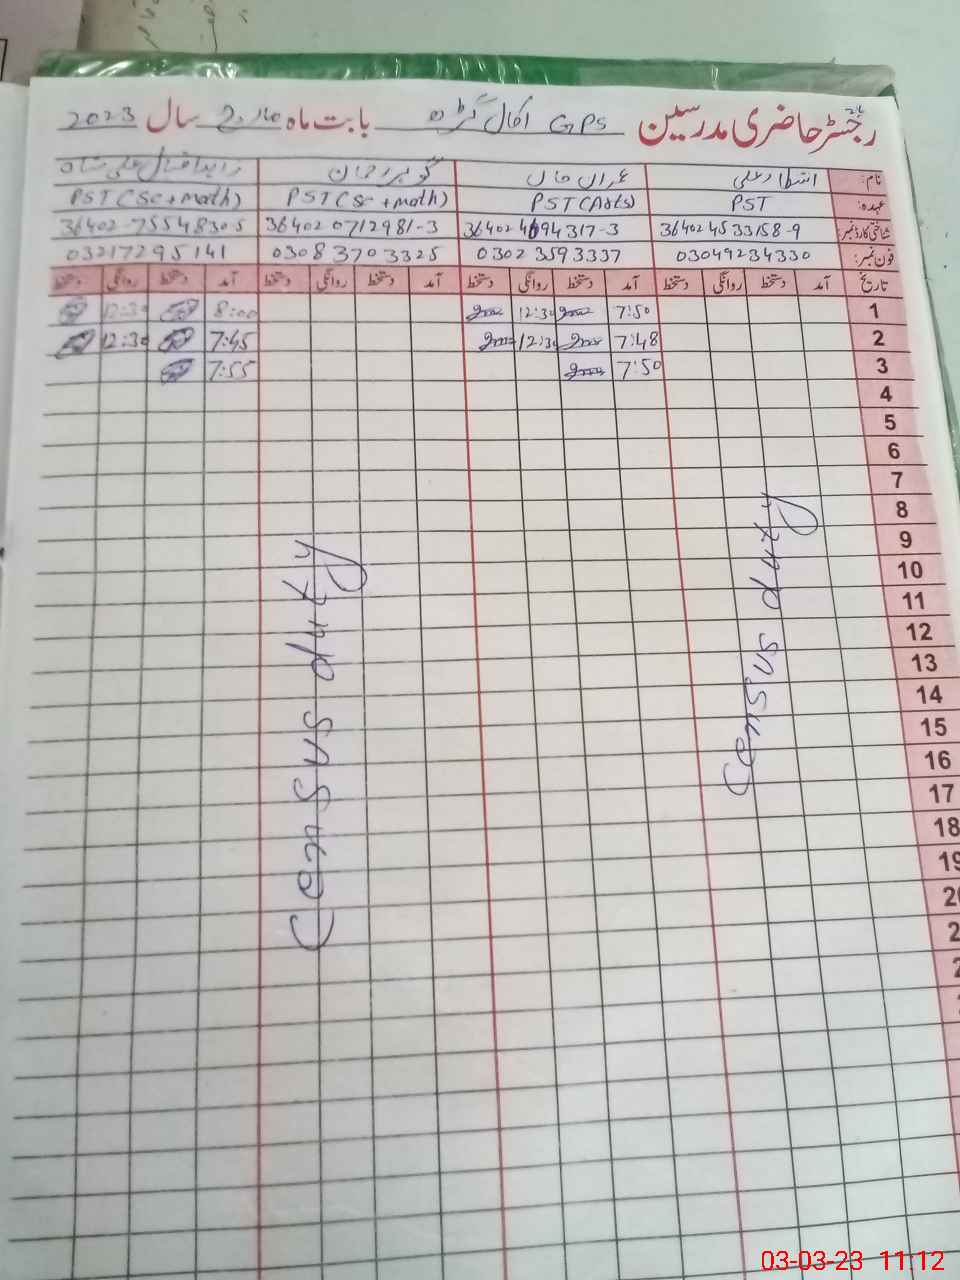 رجسٹر حاضری مدرسین GPS اکال گڑھ بابت ماہ مارچ سال 2023
نام: عمران خاں گوہر رحمان زاہد اقبال علی شاہ
عہدہ: PST PST (Arts) PST (Sc + math) PST (Sc + math)
شناختی کارڈ نمبر: 36402 4533158-9 36402 4194317-3 36402 0712981-3 36402-7554830 5
فون نمبر: 03049234330 0302 3593337 0308 3703325 03217295141
تاریخ آمد دستخط روانگی دستخط آمد دستخط روانگی دستخط آمد دستخط روانگی دستخط آمد دستخط روانگی دستخط
1 7:50 12:30 8:00 12:30
2 7:48 12:30 7:45 12:30
3 7:50 7:55
4
5
6
7
8
9
10
11
12
13
14
15
16
17
18
19
Census duty
Census duty
03-03-23 11:12